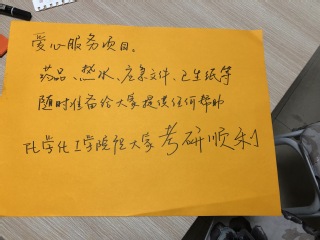 爱心服务项目。
药品、热水、应急文件、卫生纸等
随时准备给大家提供任何帮助
化学化工学院祝大家考研顺利